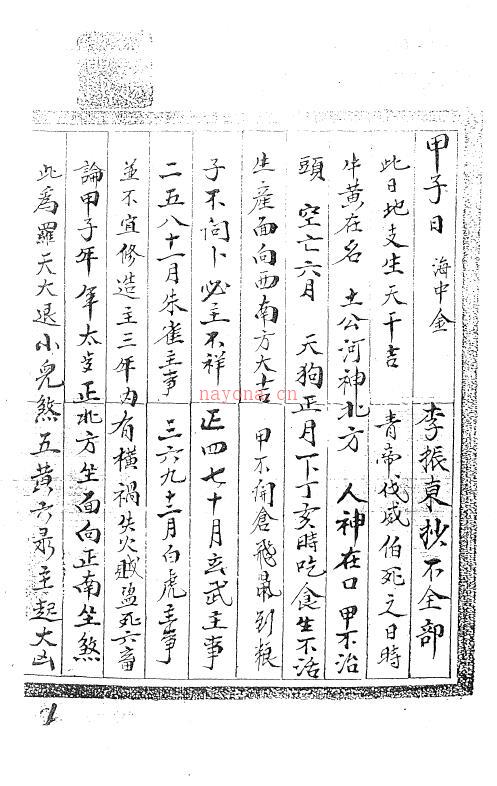 甲子日 海中金 李振東抄不全部
此日地支生天干吉 青帝伐咸伯死之日時
牛黄在名 土公河神北方 人神在口 甲不治
頭 空亡六月 天狗正月下丁亥時吃食生不活
生産面向西南方大吉 甲不開倉飛鼠到粮
子不问卜必主不祥 正四七十月玄武主事
二五八十一月朱雀主事 三六九十二月白虎主事
並不宜修造主三年内有橫禍失火賊盜死六畜
論甲子年 年太岁正北方坐面向正南坐煞
此爲羅天大退小兒煞五黄六录主起大凶
nayona.cn
1